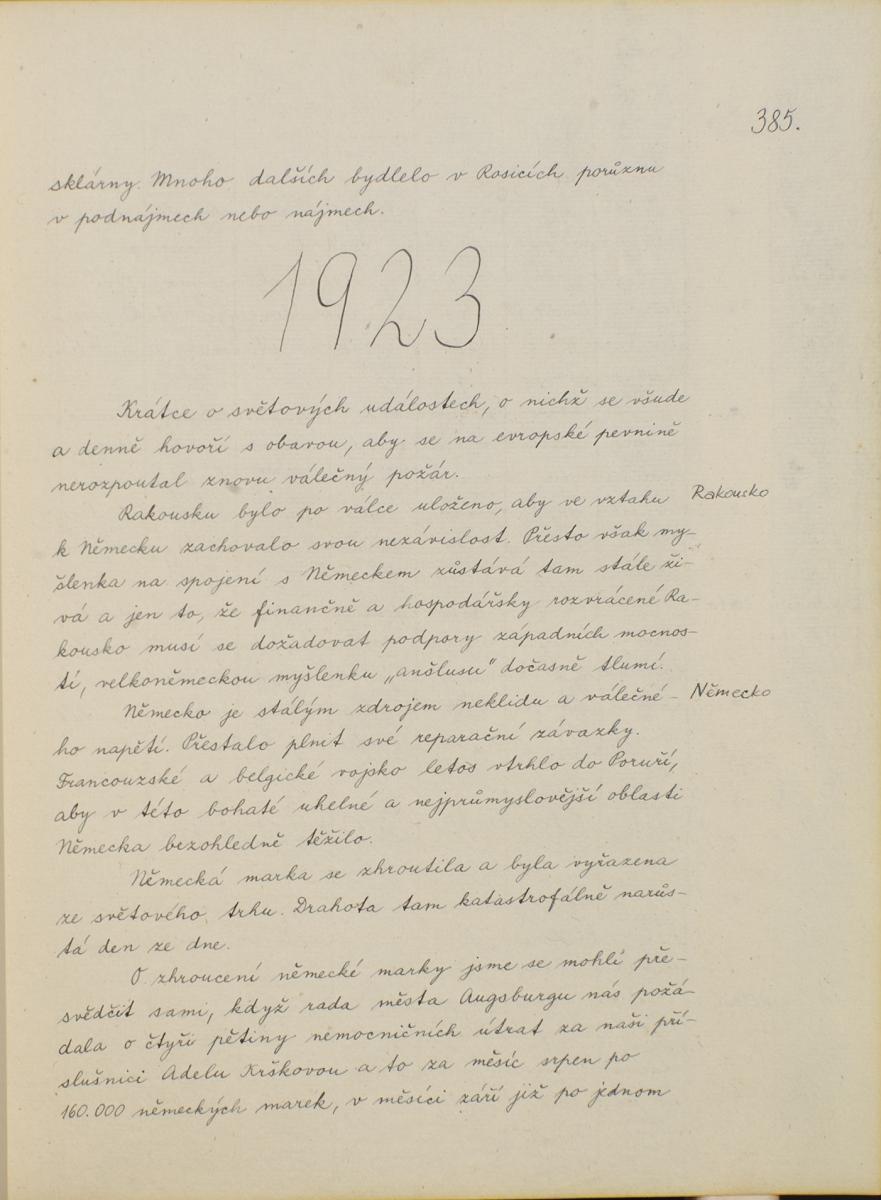 385.
sklárny. Mnoho dalších bydlelo v Rosicích porůznu
v podnájmech nebo nájmech.
1923
Krátce o světových událostech, o nichž se všude
a denně hovoří s obavou, aby se na evropské pevnině
nerozpoutal znovu válečný požár.
Rakousku bylo po válce uloženo, aby ve vztahu Rakousko
k Německu zachovalo svou nezávislost. Přesto však my-
šlenka na spojení s Německem zůstává tam stále ži-
vá a jen to, že finančně a hospodářsky rozvrácené Ra-
kousko musí se dožadovat podpory západních mocnos-
tí, velkoněmeckou myšlenku „anšlusu" dočasně tlumí.
Německo je stálým zdrojem neklidu a válečné- Německo
ho napětí. Přestalo plnit své reparační závazky.
Francouzské a belgické vojsko letos vtrhlo do Poruří,
aby v této bohaté uhelné a nejprůmyslovější oblasti
Německa bezohledně těžilo.
Německá marka se zhroutila a byla vyřazena
ze světového trhu. Drahota tam katastrofálně narůs-
tá den ze dne.
O zhroucení německé marky jsme se mohli pře-
svědčit sami, když rada města Augsburgu nás požá-
dala o čtyři pětiny nemocničních útrat za naši pří-
slušnici Adelu Krškovou a to za měsíc srpen po
160.000 německých marek, v měsíci září již po jednom